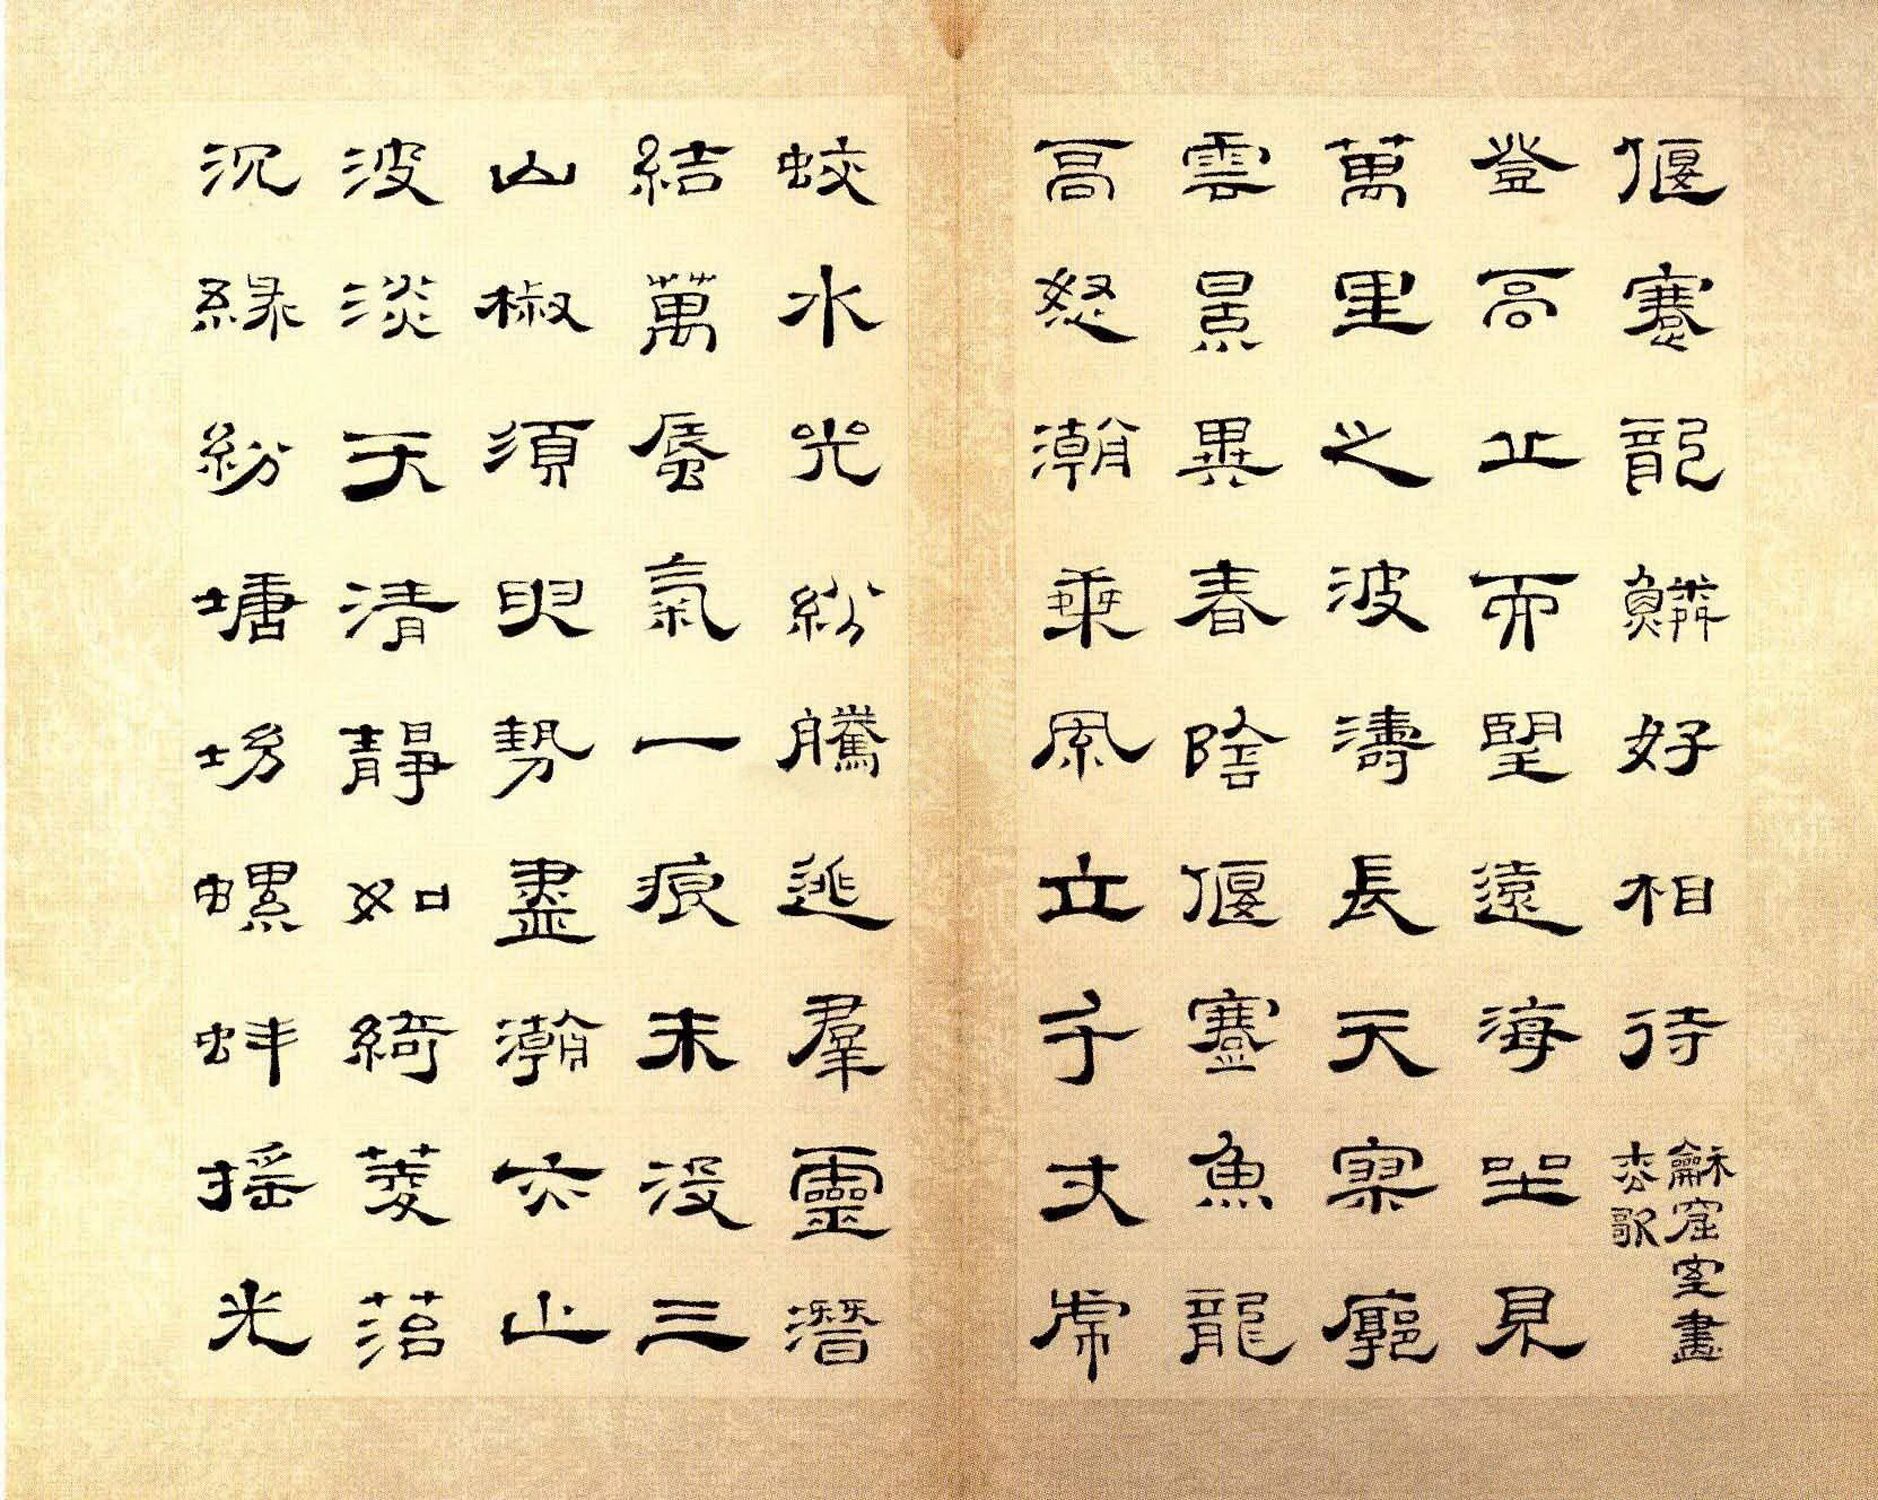 偃蹇龍鱗好相待 龢窟室畫
松歌
登高丘而望遠海坐見
萬里之波濤長天寥廓
雲景異春陰偃蹇魚龍
高怒潮乘風立千丈席
蛟水光紛騰逃羣靈潛
結萬蜃氣一痕未沒三
山椒須臾勢盡潮亦止
波淡天清靜如綺菱菭
沉綠紛塘坳螺蚌搖光